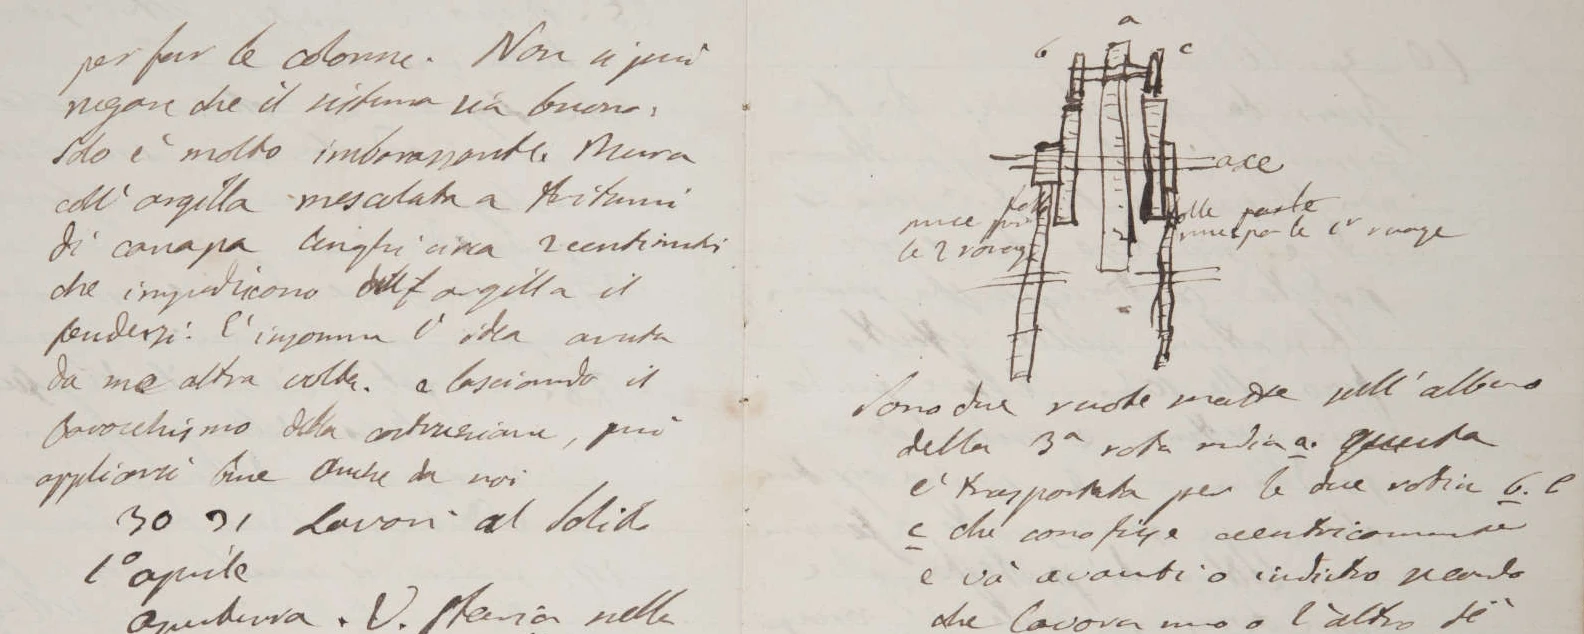 per far le colonne. Non si può
negare che il sistema sia buono,
solo è molto imbarazzante. Mura
coll' argilla mescolata a tritumi
di canapa lunghi circa 2 centimetri
che impediscono all' argilla il
fendersi: È insomma l' idea avuta
da me altra volta. e lasciando il
barocchismo della costruzione, può
applicarsi bene anche da noi
30 31 Lavori al Solito
1° aprile
apertura . V. Storia nella
a
b c
axe
folle
le 2 rouage
folle
1r rouage
Sono due ruote matte sull' albero
della 3a rota media a. questa
è trasportata per le due rotin b. e
c che sono fisse eccentricamente
e và avanti o indietro secondo
che lavora uno o l' altro di